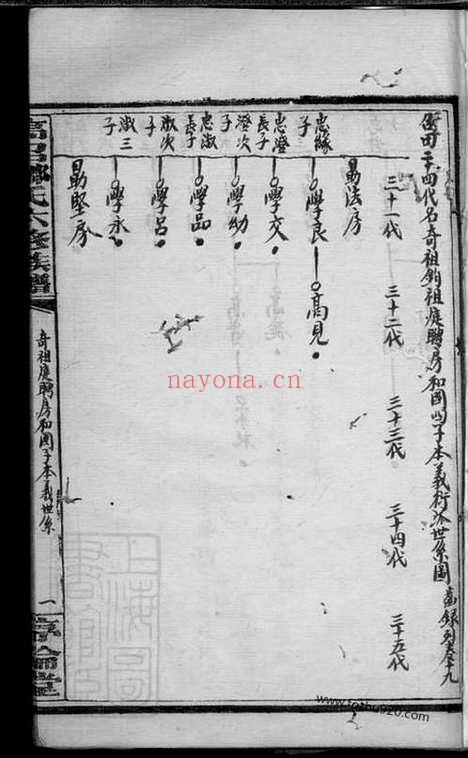 衡田二十四代名奇祖鈞祖庭聘房和國四子本義衍派世系圖 舊錄列卷十九
三十一代 三十二代 三十三代 三十四代 三十五代
勗法房
忠緣子 學良 高見
忠澄長子 學交
澄次子 學幼
忠淑長子 學品
淑次子 學呂
淑三子 學永
勗堅房
氏六修族譜
奇祖庭聘房和國子本義世系 一
nayona.cn